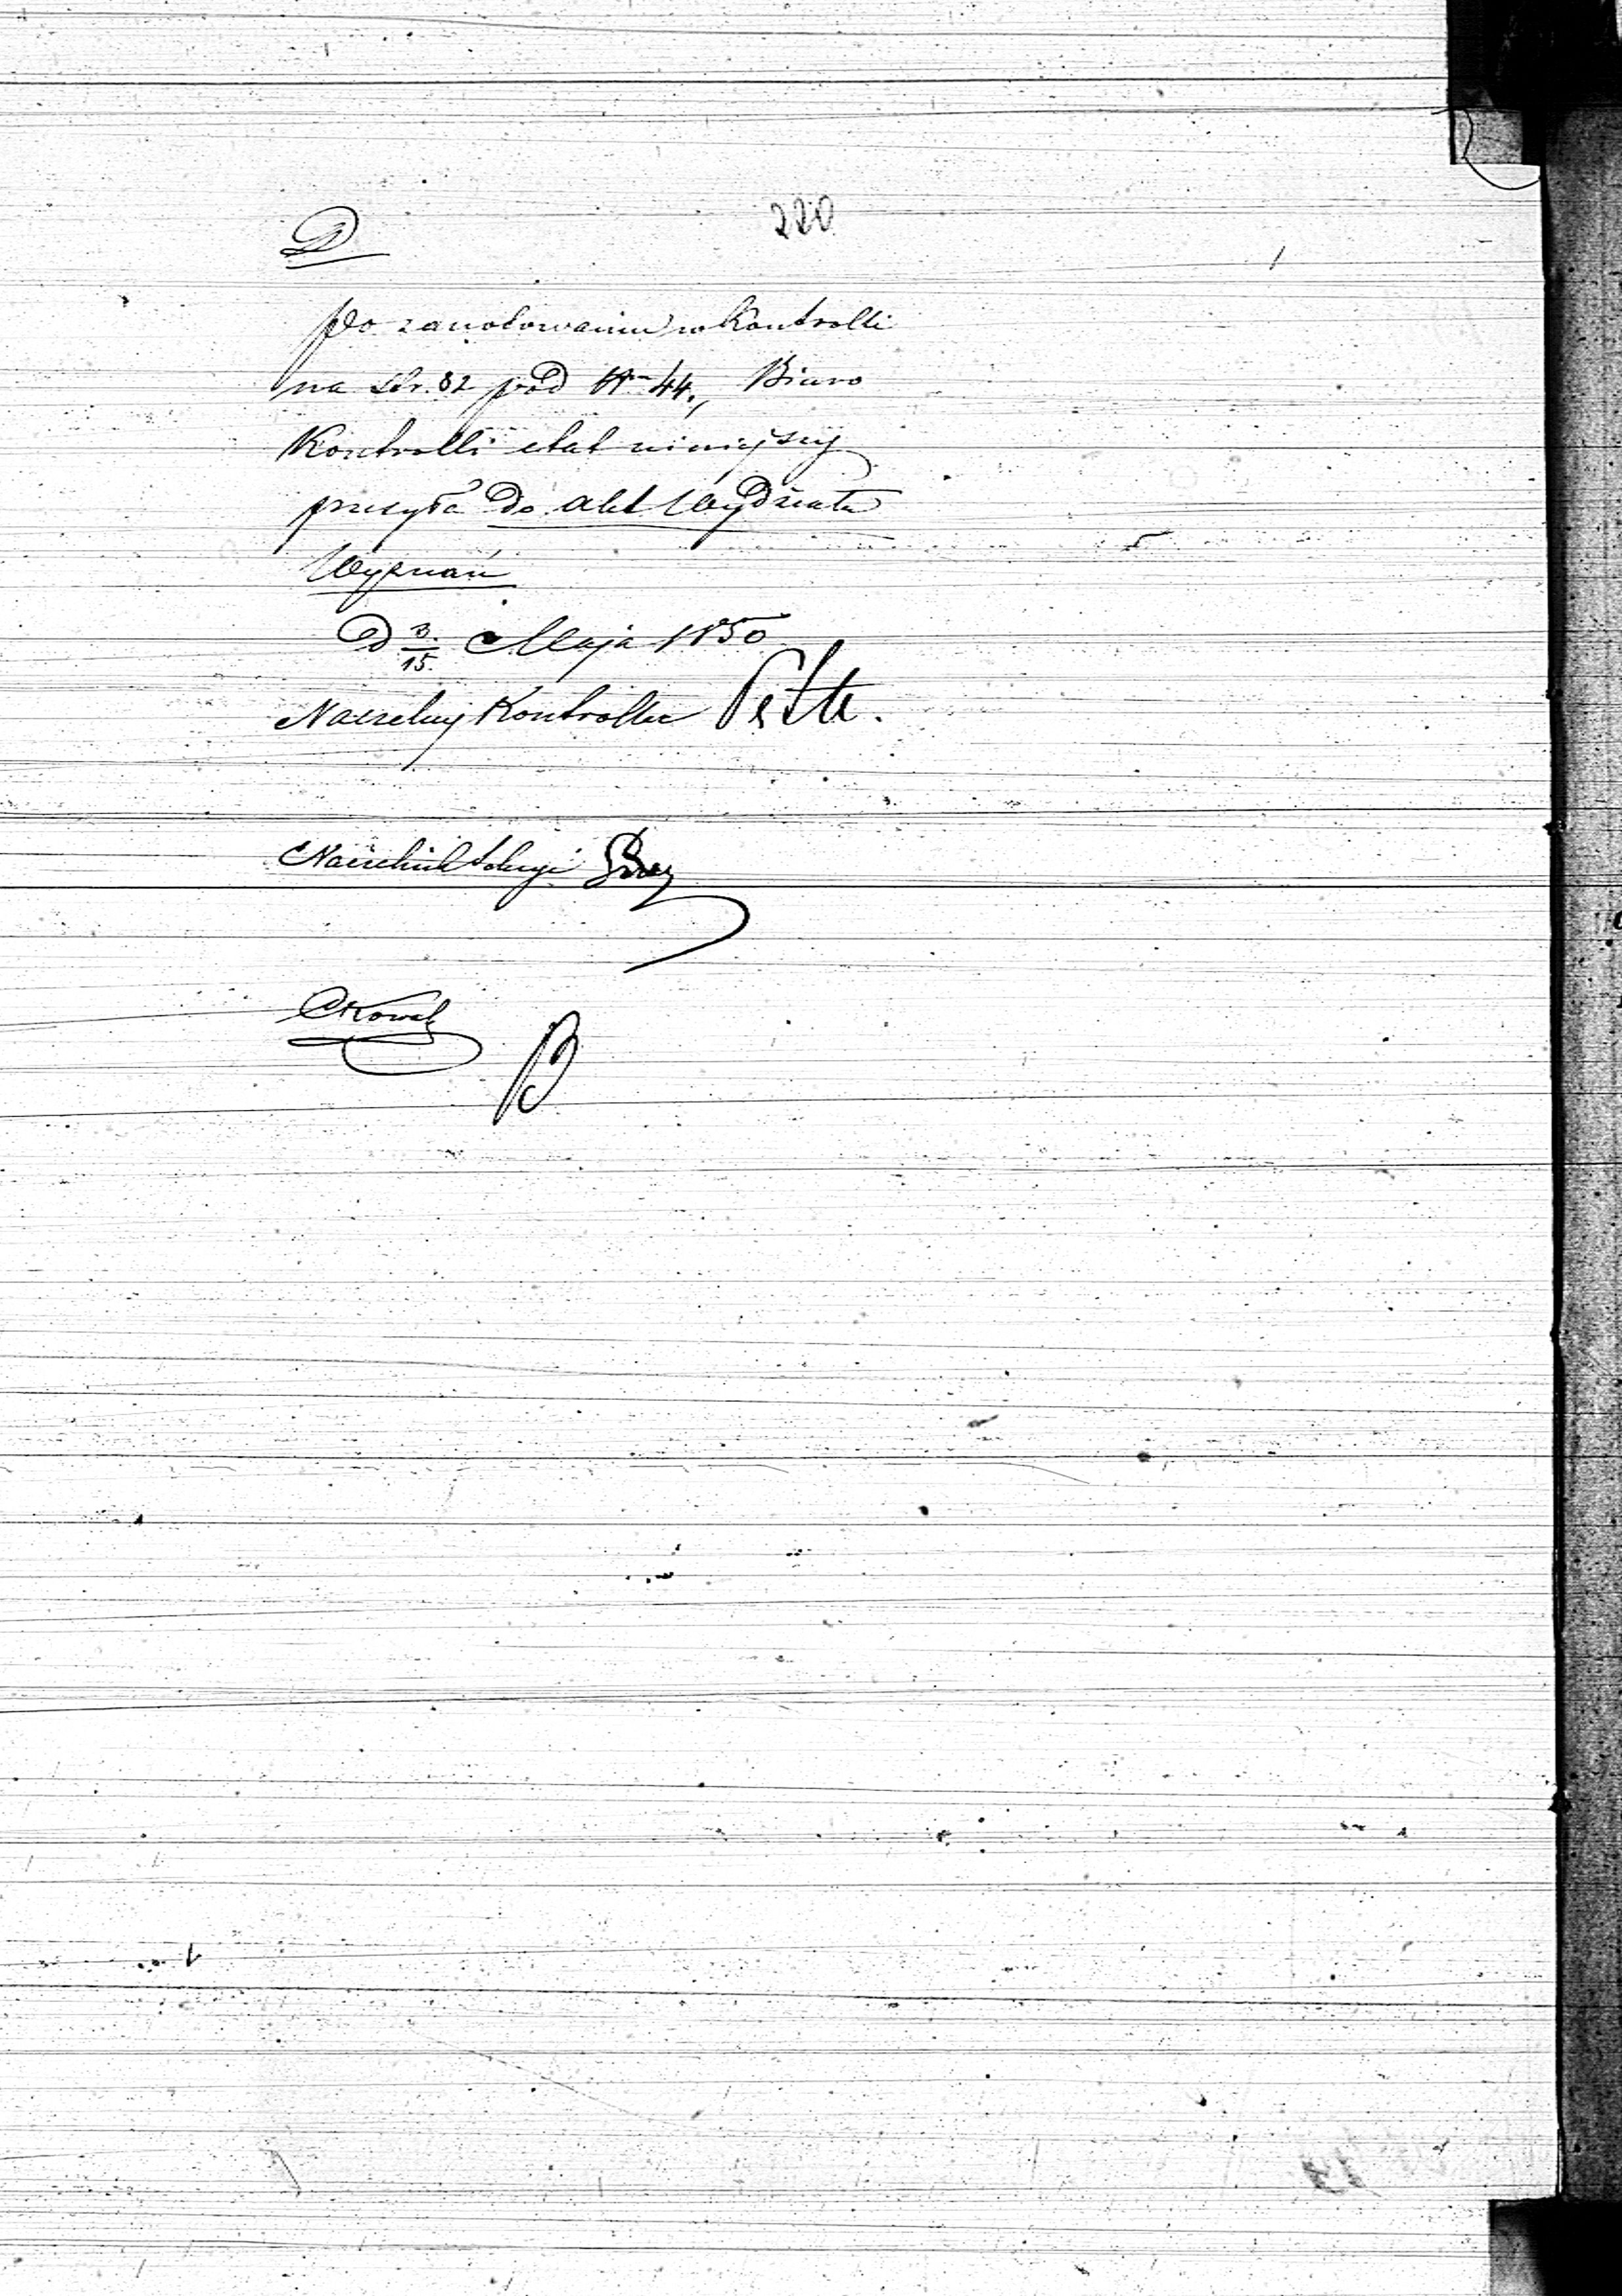 220
D
po zanotowaniu w Kontrolli
na str. 82 pod Nr 44., Biuro
Kontrolli etat niniejszy
przesyła Do Akt Wydziału
Wyznań
D 3/15 Maja 1850
Naczelny Kontroller
Naczelnik Sekcyi